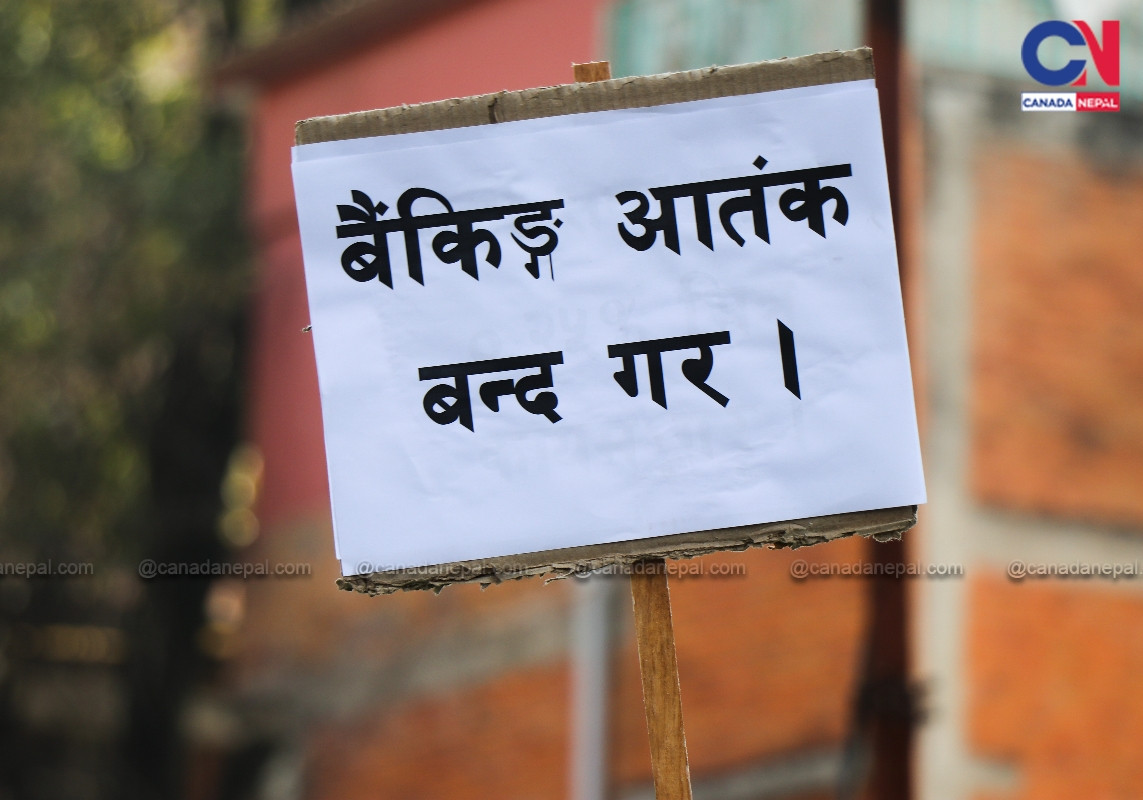 CN
CANADA NEPAL
बैंकिङ्ग आतंक
बन्द गर ।
anepal.com @canadanepal.com @canadanepal.com @canadanepal.com @canadanepal.com @canadanepal.com